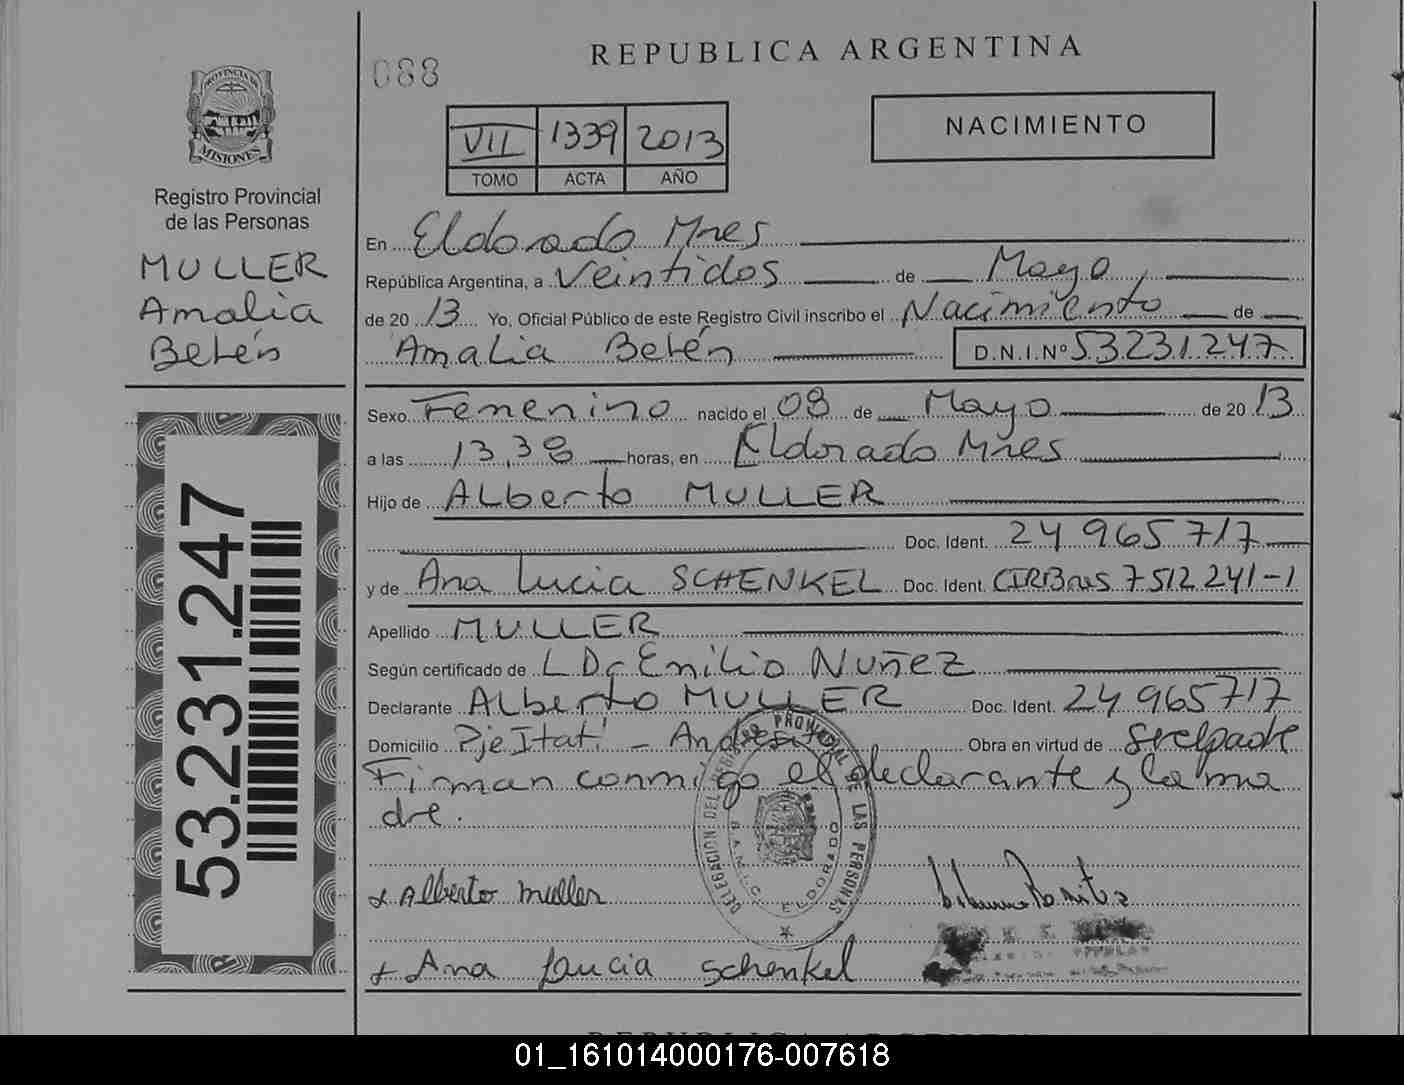 088
REPUBLICA ARGENTINA
PROVINCIA DE
MISIONES
Registro Provincial
de las Personas
MULLER
Amalia
Belén
53.231.247
VII 1339 2013
TOMO ACTA AÑO
NACIMIENTO
En Eldorado Mnes
República Argentina, a Veintidos de Mayo,
de 20 13 Yo, Oficial Público de este Registro Civil inscribo el Nacimiento de
Amalia Belén D.N.I.Nº 53231247
Sexo Femenino nacido el 08 de Mayo de 20 13
a las 13,38 horas, en Eldorado Mnes
Hijo de Alberto MULLER
Doc. Ident. 24 965 717
y de Ana Lucia SCHENKEL Doc. Ident. CIRBras 7512241-1
Apellido MULLER
Según certificado de L Dr Emilio Nuñez
Declarante Alberto MULLER Doc. Ident. 24 965717
Domicilio Pje Itatí - Andresito Obra en virtud de Serelpadre
Firman conmigo el declarante y la ma
dre.
DELEGACION DEL REGISTRO PROVINCIAL DE LAS PERSONAS
ELDORADO
x Alberto muller
x Ana Lucia schenkel
01_161014000176-007618